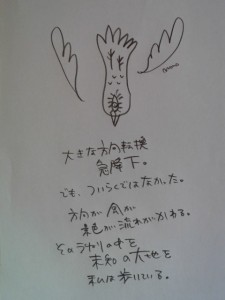 大きな方向転換
急降下。
でも、ついらくではなかった。
方向が 風が
景色が 流れがかわる。
そのうねりの中を
未知の大地を
私は歩いている。